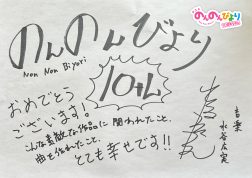 のんのんびより
Non Non Biyori
10th
おめでとう
ございます!
こんな素敵な作品に関われたこと、
曲を作れたこと、
とても幸せです!!
音楽
水谷広実
のんのんびより